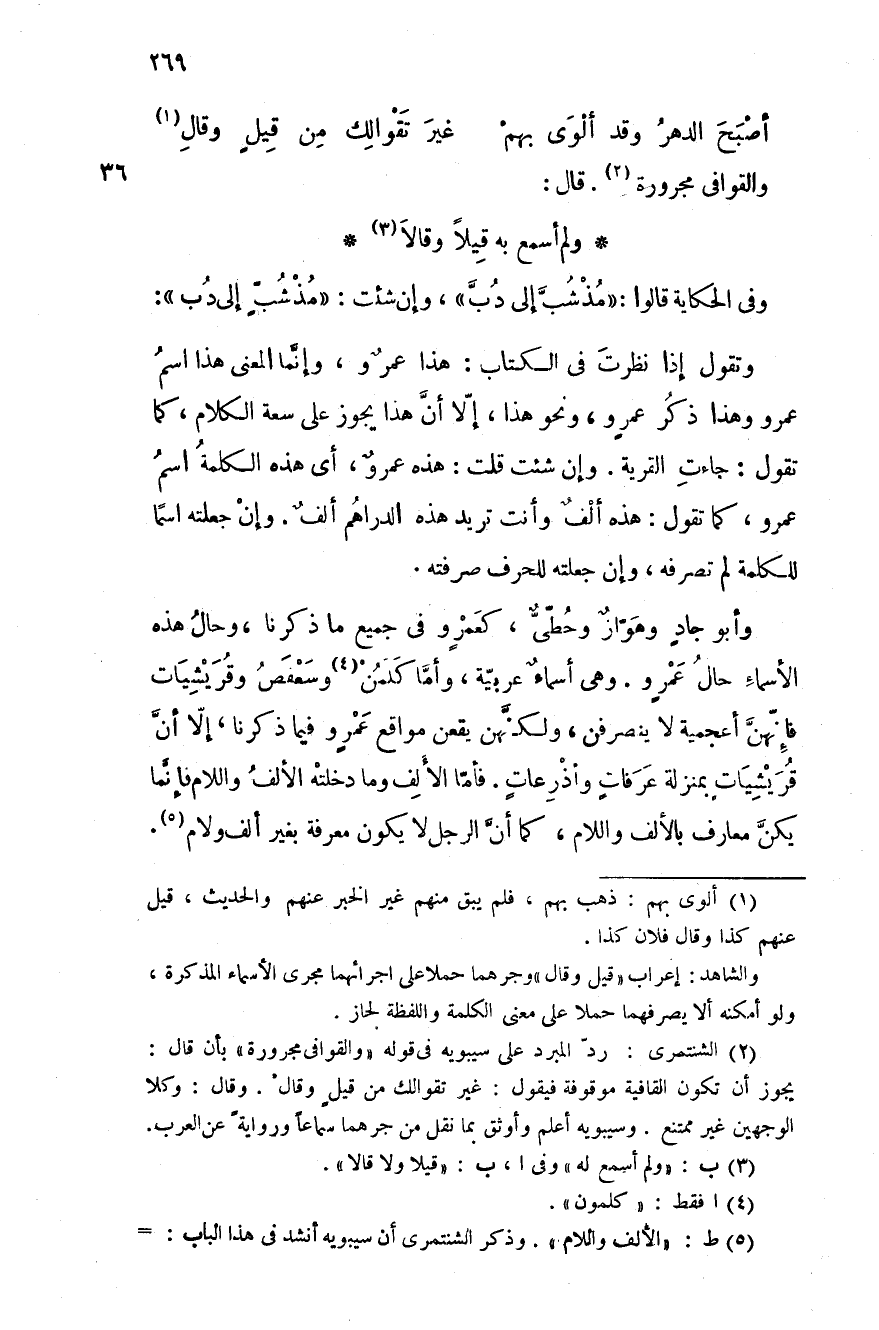 ٢٦٩
أصْبَحَ الدهرُ وقد ألْوَى بهمْ غيرَ تَقْوالِك مِن قِيلٍ وقالِ(١)
والقوافى مجرورة (٢) . قال : ٣٦
* ولم أسمع به قِيلاً وقالاَ(٣) *
وفى الحكاية قالوا : «مُذْشُبَّ إلى دُبَّ» ، وإن شئت : «مُذْشُبٍّ إلى دُبٍ» :
وتقول إذا نظرتَ فى الكتاب : هذا عمرٌو ، وإنَّما المعنى هذا اسمُ
عمرو وهذا ذكرُ عمرٍو ، ونحو هذا ، إلّا أنَّ هذا يجوز على سعة الكلام ، كما
تقول : جاءتِ القرية . وإن شئت قلت : هذه عمروٌ ، أى هذه الكلمةُ اسمُ
عمرو ، كما تقول : هذه ألْفٌ وأنت تريد هذه الدراهُم ألفٌ . وإنْ جعلته اسمًا
للكلمة لم تصرفه ، وإن جعلته للحرف صرفته .
وأبو جادٍ وهَوّازٌ وحُطّىٌّ ، كعَمْرٍو فى جميع ما ذكرنا ، وحالُ هذه
الأسماءِ حالُ عَمْرٍو . وهى أسماءٌ عربيّة ، وأمَّا كَلَمُنْ(٤) وسَعْفَصُ وقُرَيْشِيَات
فإنّهنَّ أعجمية لا ينصرفن ، ولكنَّهن يقعن مواقع عَمْرٍو فيما ذكرنا ، إلّا أنَّ
قُرَيْشِيَاتٍ بمنزلة عَرَفاتٍ وأذْرِعاتٍ . فأمّا الألِف وما دخلتْه الألفُ واللام فإنَّما
يكنَّ معارف بالألف واللام ، كما أنَّ الرجل لا يكون معرفة بغير ألف ولام (٥).
(١) ألوى بهم : ذهب بهم ، فلم يبق منهم غير الخبر عنهم والحديث ، قيل
عنهم كذا وقال فلان كذا .
والشاهد : إعراب «قيل وقال» وجرهما حملا على اجرائهما مجرى الأسماء المذكرة ،
ولو أمكنه ألا يصرفهما حملا على معنى الكلمة واللفظة لجاز .
(٢) الشنتمرى : ردّ المبرد على سيبويه فى قوله «والقوافى مجرورة» بأن قال :
يجوز أن تكون القافية موقوفة فيقول : غير تقوالك من قيلٍ وقالْ . وقال : وكلا
الوجهين غير ممتنع . وسيبويه أعلم وأوثق بما نقل من جرهما سماعاً وروايةً عن العرب.
(٣) ب : «ولم أسمع له» وفى ا ، ب : «قيلا ولا قالا» .
(٤) ا فقط : « كلمون» .
(٥) ط : «الألف واللام» . وذكر الشنتمرى أن سيبويه أنشد فى هذا الباب : =